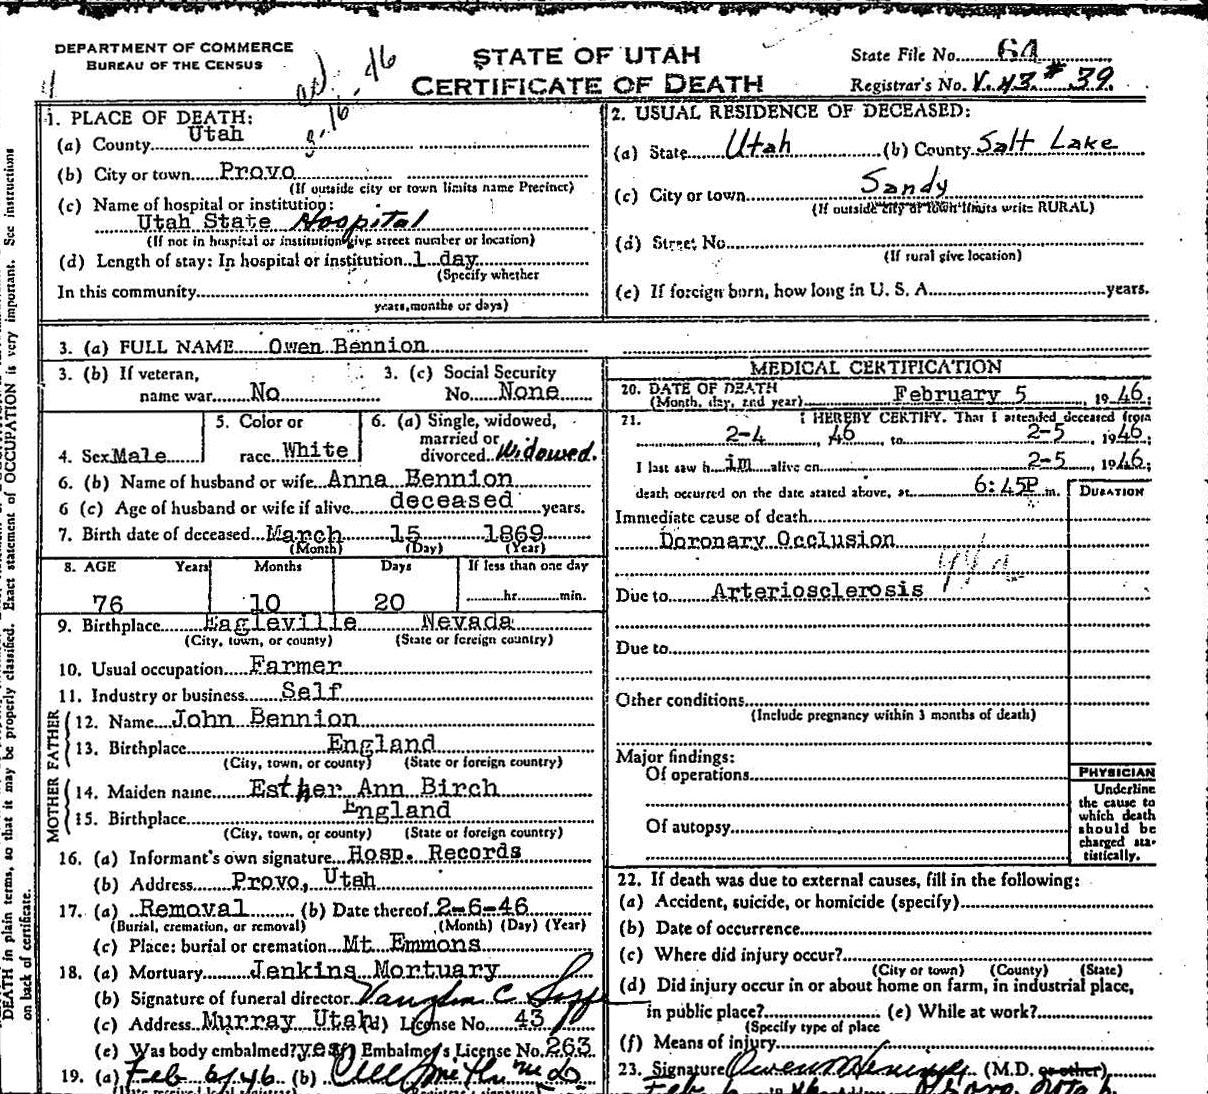 DEPARTMENT OF COMMERCE
BUREAU OF THE CENSUS
STATE OF UTAH
CERTIFICATE OF DEATH
State File No. 64
Registrar's No. V. 43 # 39.
1. PLACE OF DEATH:
(a) County Utah
(b) City or town Provo
(If outside city or town limits name Precinct)
(c) Name of hospital or institution:
Utah State Hospital
(If not in hospital or institution give street number or location)
(d) Length of stay: In hospital or institution 1 day
(Specify whether
In this community
years, months or days)
2. USUAL RESIDENCE OF DECEASED:
(a) State Utah (b) County Salt Lake
(c) City or town Sandy
(If outside city or town limits write RURAL)
(d) Street No.
(If rural give location)
(e) If foreign born, how long in U. S. A. years.
3. (a) FULL NAME Owen Bennion
3. (b) If veteran, 3. (c) Social Security
name war No No. None
4. Sex Male
5. Color or
race White
6. (a) Single, widowed,
married or
divorced Widowed.
6. (b) Name of husband or wife Anna Bennion
6 (c) Age of husband or wife if alive deceased years.
7. Birth date of deceased March 15 1869
(Month) (Day) (Year)
8. AGE Years Months Days If less than one day
76 10 20 hr. min.
9. Birthplace Eagleville Nevada
(City, town, or county) (State or foreign country)
10. Usual occupation Farmer
11. Industry or business Self
FATHER
12. Name John Bennion
13. Birthplace England
(City, town, or county) (State or foreign country)
MOTHER
14. Maiden name Esther Ann Birch
15. Birthplace England
(City, town, or county) (State or foreign country)
16. (a) Informant's own signature Hosp. Records
(b) Address Provo, Utah
17. (a) Removal (b) Date thereof 2-6-46
(Burial, cremation, or removal) (Month) (Day) (Year)
(c) Place: burial or cremation Mt Emmons
18. (a) Mortuary Jenkins Mortuary
(b) Signature of funeral director Vaughn C.
(c) Address Murray Utah (d) License No. 43
(e) Was body embalmed? yes (f) Embalmer's License No. 263
19. (a) Feb 6/46 (b)
MEDICAL CERTIFICATION
20. DATE OF DEATH
(Month, day, and year) February 5, 1946;
21. I HEREBY CERTIFY. That I attended deceased from
2-4, 46, to 2-5, 1946;
I last saw him alive on 2-5, 1946;
death occurred on the date stated above, at 6:45P m.
DURATION
Immediate cause of death
Doronary Occlusion
Due to Arteriosclerosis
Due to
Other conditions
(Include pregnancy within 3 months of death)
Major findings:
Of operations
Of autopsy
PHYSICIAN
Underline
the cause to
which death
should be
charged sta-
tistically.
22. If death was due to external causes, fill in the following:
(a) Accident, suicide, or homicide (specify)
(b) Date of occurrence
(c) Where did injury occur?
(City or town) (County) (State)
(d) Did injury occur in or about home on farm, in industrial place,
in public place? (e) While at work?
(Specify type of place
(f) Means of injury
23. Signature Owen (M.D. or other)
DEATH in plain terms, so that it may be properly classified. Exact statement of OCCUPATION is very important. See instructions
on back of certificate.